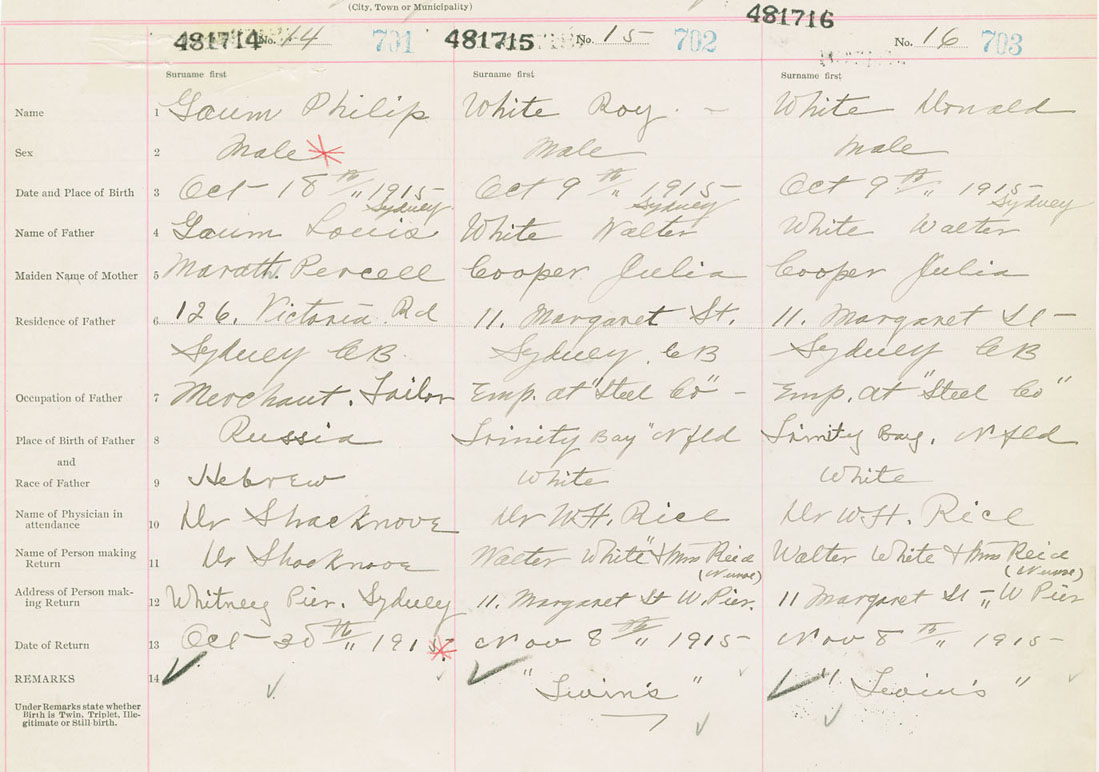 (City, Town or Municipality)
481714 No. 14 701 481715 No. 15 702 481716 No. 16 703
Surname first Surname first Surname first
Name 1 Gaum Philip White Roy - White Donald
Sex 2 Male * Male Male
Date and Place of Birth 3 Oct 18th " 1915 Oct 9th " 1915 Oct 9th " 1915
Sydney Sydney Sydney
Name of Father 4 Gaum Louis White Walter White Walter
Maiden Name of Mother 5 Percell Cooper Julia Cooper Julia
Residence of Father 6 126. Victoria Rd 11. Margaret St. 11. Margaret St -
Sydney CB Sydney, CB Sydney CB
Occupation of Father 7 Merchant. Tailor Emp. at "Steel Co" - Emp. at "Steel Co"
Place of Birth of Father 8 Russia Trinity Bay" Nfld Trinity Bay. Nfld
and
Race of Father 9 Hebrew White White
Name of Physician in
attendance 10 Dr Shacknove Dr W.H. Rice Dr W.H. Rice
Name of Person making
Return 11 Dr Shacknove Walter White" + Mrs Reid Walter White + Mrs Reid
(Nurse) (Nurse)
Address of Person mak-
ing Return 12 Whitney Pier. Sydney 11. Margaret St W. Pier. 11 Margaret St - " W Pier
Date of Return 13 Oct - 30th " 191 * Nov 8th " 1915 - Nov 8th " 1915 -
REMARKS 14 "Twins" "Twins"
Under Remarks state whether
Birth is Twin, Triplet, Ille-
gitimate or Still-birth.